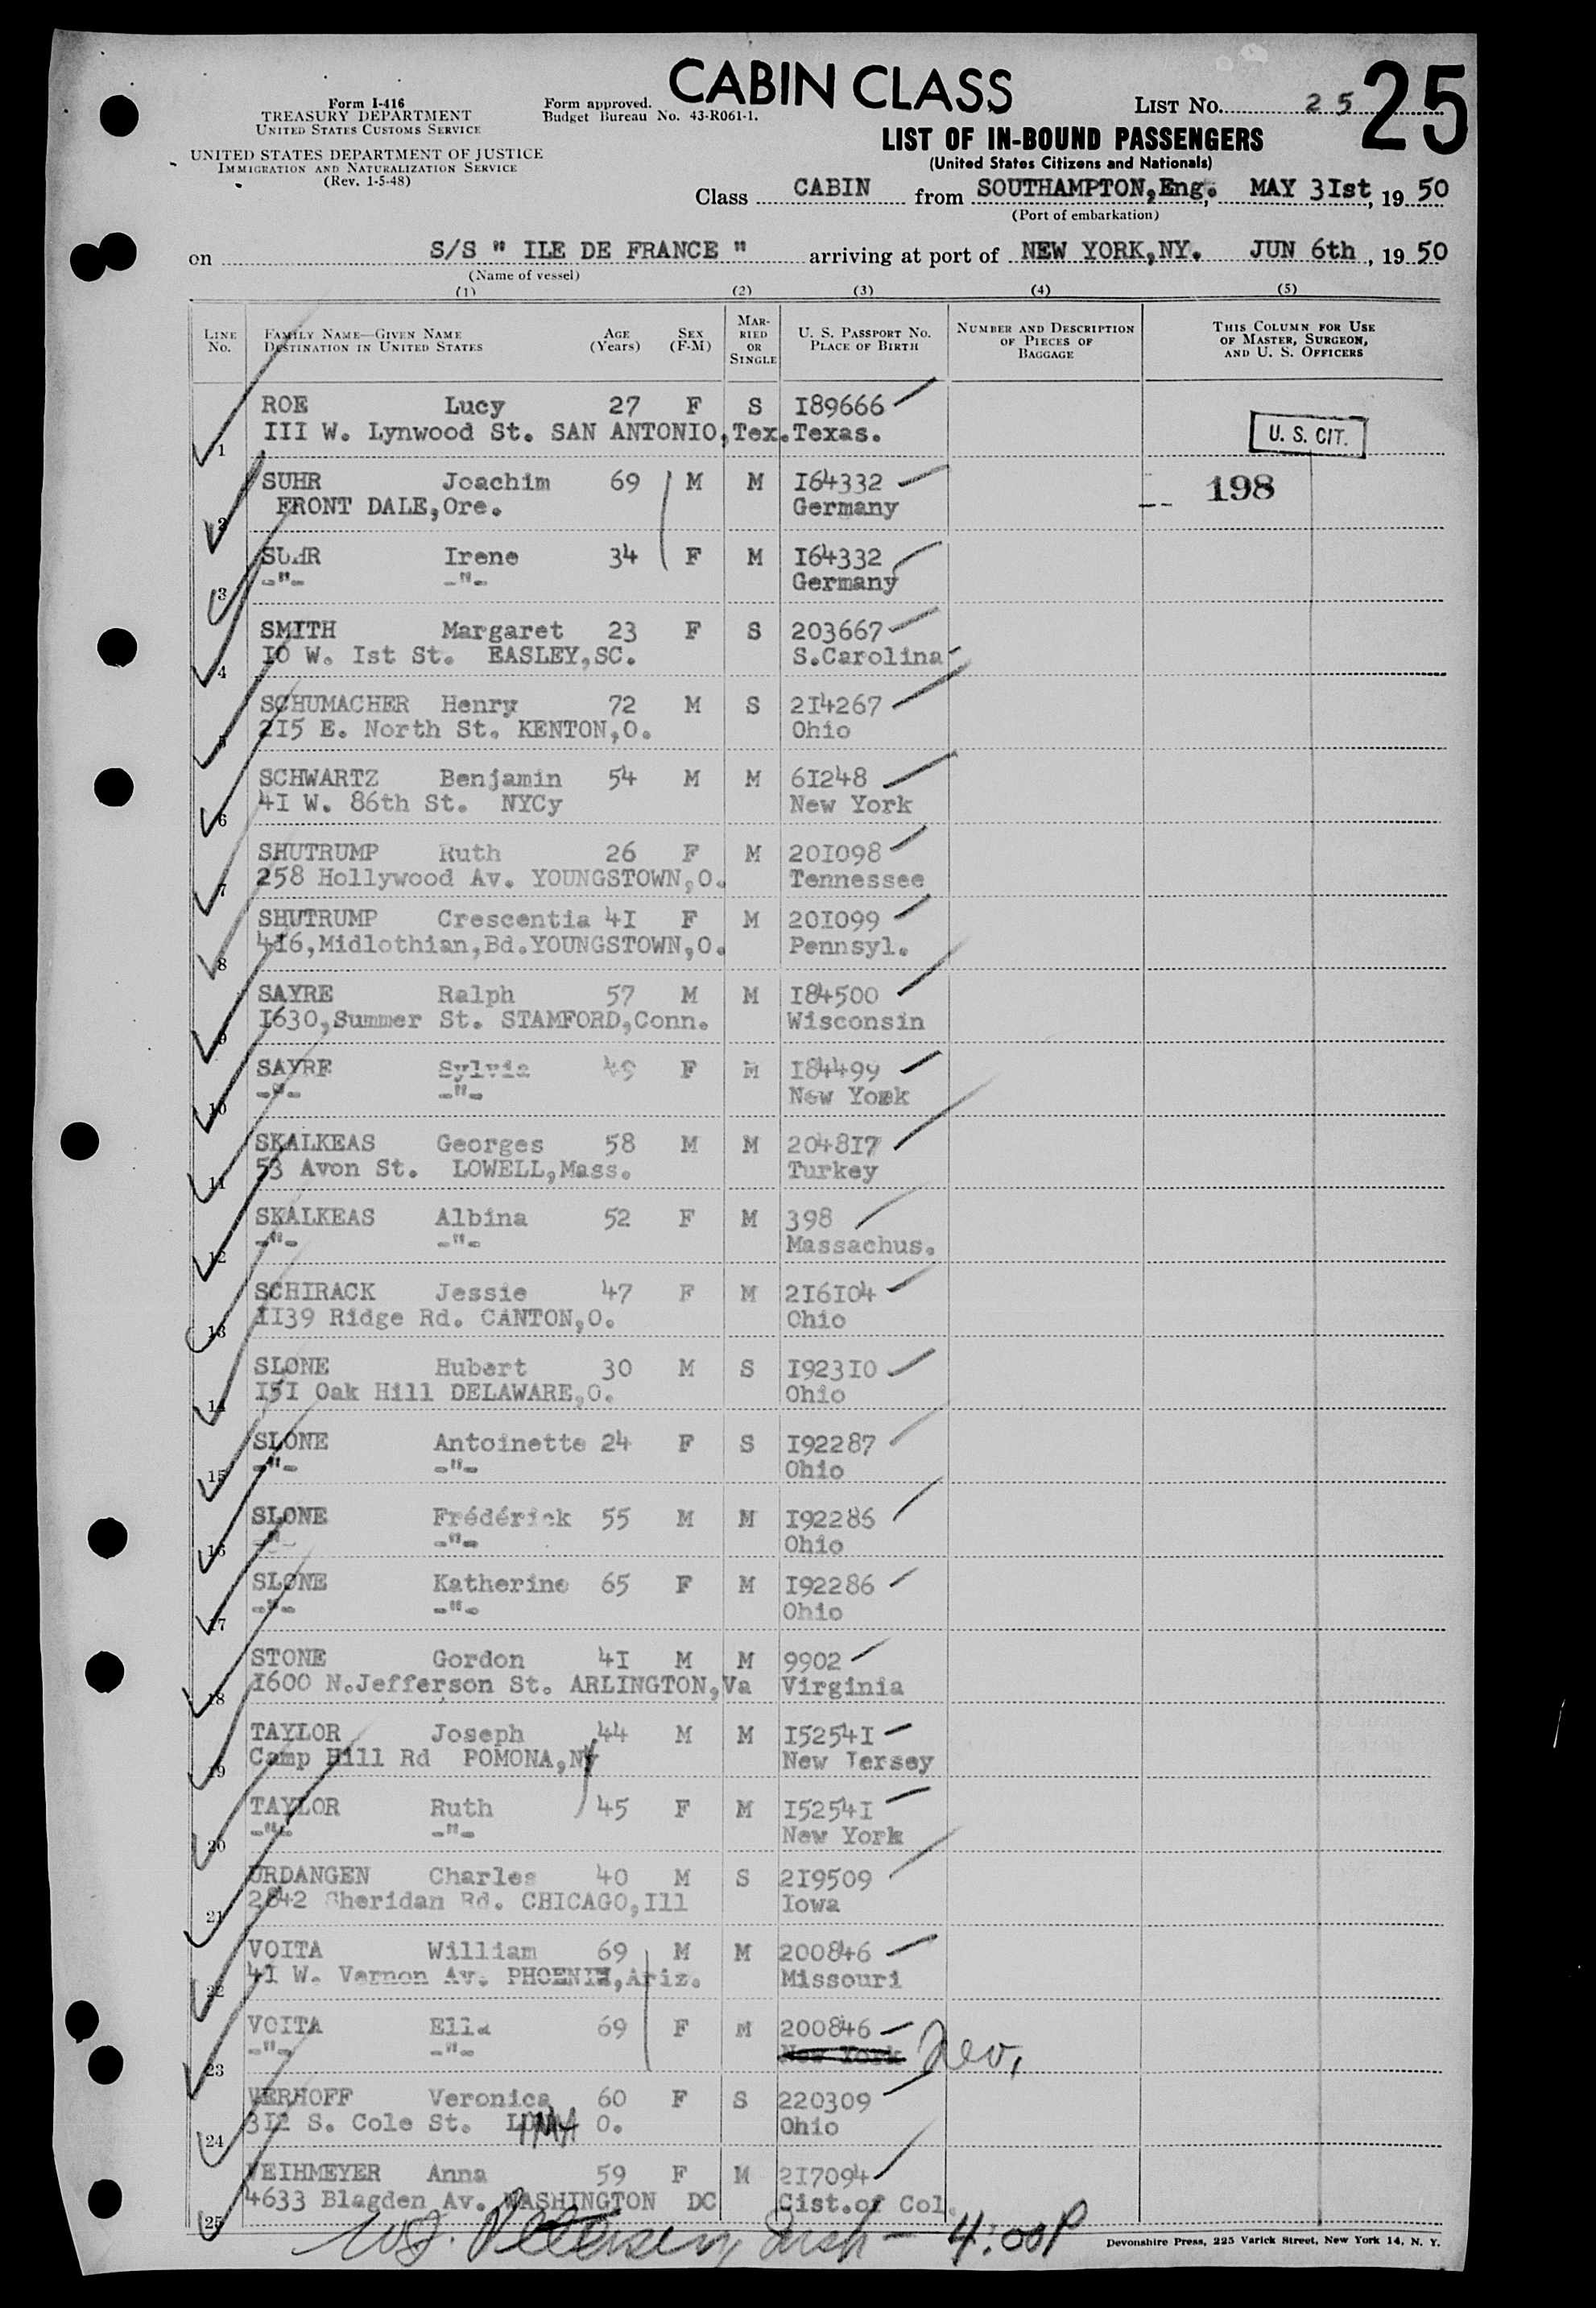 CABIN CLASS
25
Form I-416
TREASURY DEPARTMENT
UNITED STATES CUSTOMS SERVICE
UNITED STATES DEPARTMENT OF JUSTICE
IMMIGRATION AND NATURALIZATION SERVICE
(Rev. 1-5-48)
Form approved.
Budget Bureau No. 43-R061-1.
LIST NO. 25
LIST OF IN-BOUND PASSENGERS
(United States Citizens and Nationals)
Class CABIN from SOUTHAMPTON,Eng. MAY 3Ist, 19 50
(Port of embarkation)
on S/S " ILE DE FRANCE " arriving at port of NEW YORK,NY. JUN 6th, 19 50
(Name of vessel)
(1) (2) (3) (4) (5)
LINE NO. FAMILY NAME—GIVEN NAME DESTINATION IN UNITED STATES AGE (Years) SEX (F-M) MARRIED OR SINGLE U. S. PASSPORT NO. PLACE OF BIRTH NUMBER AND DESCRIPTION OF PIECES OF BAGGAGE THIS COLUMN FOR USE OF MASTER, SURGEON, AND U. S. OFFICERS
ROE Lucy 27 F S I89666
1 III W. Lynwood St. SAN ANTONIO,Tex. Texas. U. S. CIT.
SUHR Joachim 69 M M I64332 198
2 FRONT DALE,Ore. Germany
SUHR Irene 34 F M I64332
3 -"- -"- Germany
SMITH Margaret 23 F S 203667
4 IO W. Ist St. EASLEY,SC. S.Carolina
SCHUMACHER Henry 72 M S 2I4267
5 2I5 E. North St. KENTON,O. Ohio
SCHWARTZ Benjamin 54 M M 6I248
6 4I W. 86th St. NYCy New York
SHUTRUMP Ruth 26 F M 20I098
7 258 Hollywood Av. YOUNGSTOWN,O. Tennessee
SHUTRUMP Crescentia 4I F M 20I099
8 4I6,Midlothian,Bd.YOUNGSTOWN,O. Pennsyl.
SAYRE Ralph 57 M M I84500
9 I630,Summer St. STAMFORD,Conn. Wisconsin
SAYRE Sylvia 49 F M I84499
10 -"- -"- New York
SKALKEAS Georges 58 M M 2048I7
11 53 Avon St. LOWELL,Mass. Turkey
SKALKEAS Albina 52 F M 398
12 -"- -"- Massachus.
SCHIRACK Jessie 47 F M 2I6I04
13 II39 Ridge Rd. CANTON,O. Ohio
SLONE Hubert 30 M S I923I0
14 I5I Oak Hill DELAWARE,O. Ohio
SLONE Antoinette 24 F S I92287
15 -"- -"- Ohio
SLONE Frédérick 55 M M I92286
16 -"- -"- Ohio
SLONE Katherine 65 F M I92286
17 -"- -"- Ohio
STONE Gordon 4I M M 9902
18 I600 N.Jefferson St. ARLINGTON,Va Virginia
TAYLOR Joseph 44 M M I5254I
19 Camp Hill Rd POMONA,NY New Jersey
TAYLOR Ruth 45 F M I5254I
20 -"- -"- New York
URDANGEN Charles 40 M S 2I9509
21 2842 Sheridan Rd. CHICAGO,Ill Iowa
VOITA William 69 M M 200846
22 4I W. Vernon Av. PHOENIX,Ariz. Missouri
VOITA Ella 69 F M 200846
23 -"- -"- New York
VERHOFF Veronica 60 F S 220309
24 3I2 S. Cole St. LIMA O. Ohio
VEIHMEYER Anna 59 F M 2I7094
25 4633 Blagden Av. WASHINGTON DC Cist.of Col.
4:00P
Devonshire Press, 225 Varick Street, New York 14, N. Y.